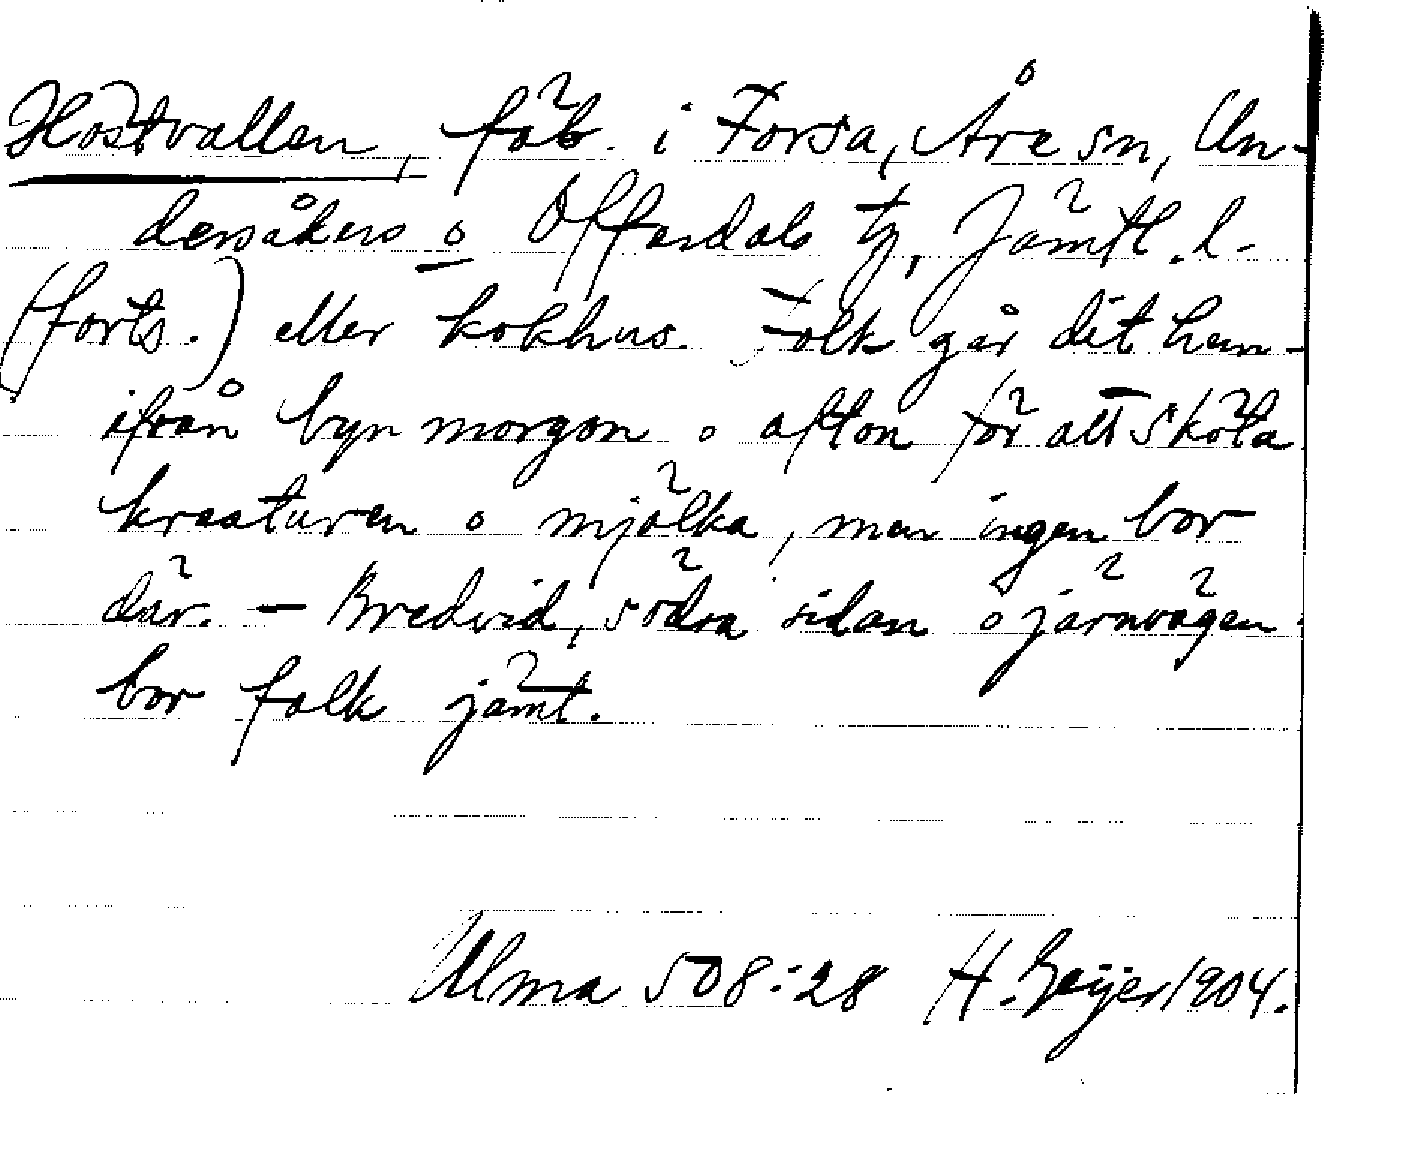 Höstvallen, fäb. i Forsa, Åre sn, Un-
dersåkers o Offerdals tg, Jämtl. l.
(forts.) eller kokhus. Folk går dit hem-
ifrån byn morgon o afton för att sköta
kreaturen o mjölka, men ingen bor
där. - Bredvid, södra sidan o järnvägen
bor folk jämt.
Ulma 508:28 H. Geijer 1904.